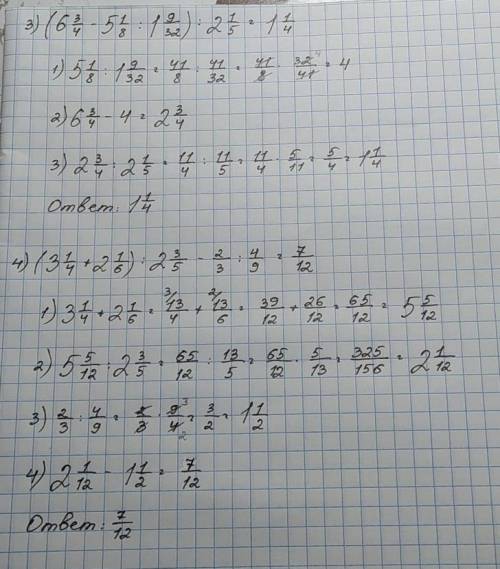 3) (6 3/4 - 5 1/8 : 1 9/32) : 2 1/5 = 1 1/4
1) 5 1/8 : 1 9/32 = 41/8 : 41/32 = 41/8 · 32/41 = 4
2) 6 3/4 - 4 = 2 3/4
3) 2 3/4 : 2 1/5 = 11/4 : 11/5 = 11/4 · 5/11 = 5/4 = 1 1/4
Ответ: 1 1/4
4) (3 1/4 + 2 1/6) : 2 3/5 - 2/3 : 4/9 = 7/12
1) 3 1/4 + 2 1/6 = 3/ 13/4 + 2/ 13/6 = 39/12 + 26/12 = 65/12 = 5 5/12
2) 5 5/12 : 2 3/5 = 65/12 : 13/5 = 65/12 · 5/13 = 325/156 = 2 1/12
3) 2/3 : 4/9 = 2/3 · 9/4 = 3/2 = 1 1/2
4) 2 1/12 - 1 1/2 = 7/12
Ответ: 7/12